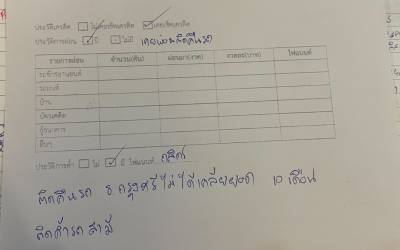 ประวัติเครดิต ☐ ไม่เคยเช็คเครดิต ☑ เคยเช็คเครดิต
ประวัติการผ่อน ☑ มี ☐ ไม่มี เคยผ่อนติดคืนรถ
รายการผ่อน จำนวน(คัน) ผ่อนมา(งวด) งวดละ(บาท) ไฟแนนท์
รถจักรยานยนต์
รถยนต์
บ้าน
บัตรเครดิต
กู้ธนาคาร
อื่นๆ
ประวัติการค้ำ ☐ ไม่ ☑ มี ไฟแนนท์
ติดคืนรถ ธ กรุงศรี ไม่ได้เคลียยอด 10 เดือน
ติดค้ำรถสามี